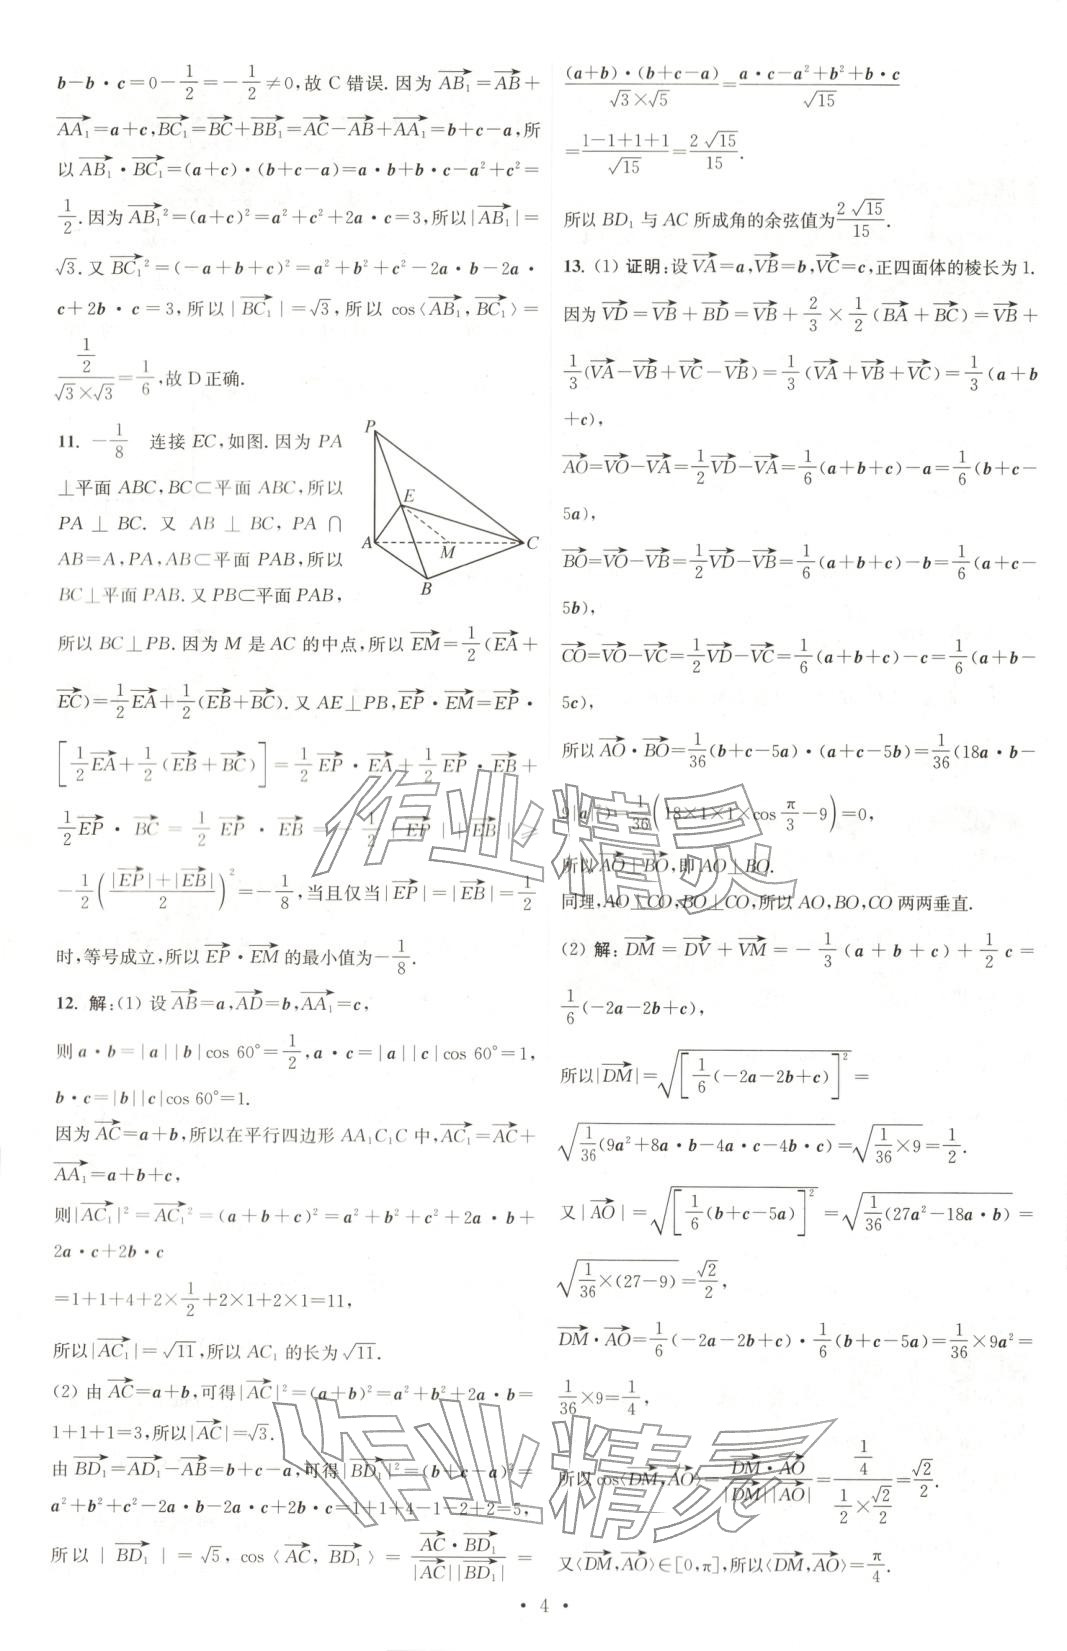 b－b·c＝0－1/2＝－1/2≠0,故 C 错误.因为 →AB₁＝→AB＋
→AA₁＝a＋c,→BC₁＝→BC＋→BB₁＝→AC－→AB＋→AA₁＝b＋c－a,所
以 →AB₁·→BC₁＝(a＋c)·(b＋c－a)＝a·b＋b·c－a²＋c²＝
1/2.因为 →AB₁²＝(a＋c)²＝a²＋c²＋2a·c＝3,所以|→AB₁|＝
√3.又 →BC₁²＝(－a＋b＋c)²＝a²＋b²＋c²－2a·b－2a·
c＋2b·c＝3,所以|→BC₁|＝√3,所以 cos⟨→AB₁,→BC₁⟩＝
(1/2)/(√3×√3)＝1/6,故 D 正确.
11. －1/8 连接 EC,如图.因为 PA
⊥平面 ABC,BC⊂平面 ABC,所以
PA⊥BC.又 AB⊥BC,PA∩
AB＝A,PA,AB⊂平面 PAB,所以
BC⊥平面 PAB.又 PB⊂平面 PAB,
P
E
A
M
C
B
所以 BC⊥PB.因为 M 是 AC 的中点,所以 →EM＝1/2(→EA＋
→EC)＝1/2→EA＋1/2(→EB＋→BC).又 AE⊥PB,→EP·→EM＝→EP·
[1/2→EA＋1/2(→EB＋→BC)]＝1/2→EP·→EA＋1/2→EP·→EB＋
1/2→EP·→BC＝1/2→EP·→EB＝－1/2|→EP||→EB|≥
－1/2((|→EP|＋|→EB|)/2)²＝－1/8,当且仅当|→EP|＝|→EB|＝1/2
时,等号成立,所以 →EP·→EM 的最小值为－1/8.
12. 解:(1) 设 →AB＝a,→AD＝b,→AA₁＝c,
则 a·b＝|a||b|cos 60°＝1/2,a·c＝|a||c|cos 60°＝1,
b·c＝|b||c|cos 60°＝1.
因为 →AC＝a＋b,所以在平行四边形 AA₁C₁C 中,→AC₁＝→AC＋
→AA₁＝a＋b＋c,
则|→AC₁|²＝→AC₁²＝(a＋b＋c)²＝a²＋b²＋c²＋2a·b＋
2a·c＋2b·c
＝1＋1＋4＋2×1/2＋2×1＋2×1＝11,
所以|→AC₁|＝√11,所以 AC₁ 的长为√11.
(2) 由 →AC＝a＋b,可得|→AC|²＝(a＋b)²＝a²＋b²＋2a·b＝
1＋1＋1＝3,所以|→AC|＝√3.
由 →BD₁＝→AD₁－→AB＝b＋c－a,可得|→BD₁|²＝(b＋c－a)²＝
a²＋b²＋c²－2a·b－2a·c＋2b·c＝1＋1＋4－1－2＋2＝5,
所以|→BD₁|＝√5, cos⟨→AC,→BD₁⟩＝(→AC·→BD₁)/(|→AC||→BD₁|)＝
((a＋b)·(b＋c－a))/(√3×√5)＝(a·c－a²＋b²＋b·c)/√15
＝(1－1＋1＋1)/√15＝2√15/15.
所以 BD₁ 与 AC 所成角的余弦值为2√15/15.
13. (1) 证明:设 →VA＝a,→VB＝b,→VC＝c,正四面体的棱长为 1.
因为 →VD＝→VB＋→BD＝→VB＋2/3×1/2(→BA＋→BC)＝→VB＋
1/3(→VA－→VB＋→VC－→VB)＝1/3(→VA＋→VB＋→VC)＝1/3(a＋b
＋c),
→AO＝→VO－→VA＝1/2→VD－→VA＝1/6(a＋b＋c)－a＝1/6(b＋c－
5a),
→BO＝→VO－→VB＝1/2→VD－→VB＝1/6(a＋b＋c)－b＝1/6(a＋c－
5b),
→CO＝→VO－→VC＝1/2→VD－→VC＝1/6(a＋b＋c)－c＝1/6(a＋b－
5c),
所以 →AO·→BO＝1/36(b＋c－5a)·(a＋c－5b)＝1/36(18a·b－
9|a|²)＝1/36(18×1×1×cos π/3－9)＝0,
所以 →AO⊥→BO,即 AO⊥BO.
同理,AO⊥CO,BO⊥CO,所以 AO,BO,CO 两两垂直.
(2) 解:→DM＝→DV＋→VM＝－1/3(a＋b＋c)＋1/2c＝
1/6(－2a－2b＋c),
所以|→DM|＝√([1/6(－2a－2b＋c)]²)＝
√(1/36(9a²＋8a·b－4a·c－4b·c))＝√(1/36×9)＝1/2.
又|→AO|＝√([1/6(b＋c－5a)]²)＝√(1/36(27a²－18a·b))＝
√(1/36×(27－9))＝√2/2,
→DM·→AO＝1/6(－2a－2b＋c)·1/6(b＋c－5a)＝1/36×9a²＝
1/36×9＝1/4,
所以 cos⟨→DM,→AO⟩＝(→DM·→AO)/(|→DM||→AO|)＝(1/4)/(1/2×√2/2)＝√2/2.
又⟨→DM,→AO⟩∈[0,π],所以⟨→DM,→AO⟩＝π/4.
· 4 ·
作业精灵
作业精灵